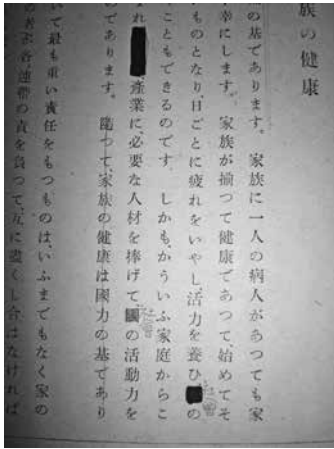 族の健康
の基であります。 家族に一人の病人があつても家
幸にします。 家族が揃つて健康であつて、始めてそ
ものとなり、日ごとに疲れをいやし、活力を養ひ、の
社会
こともできるのです。 しかも、かういふ家庭からこ
まれ 産業に、必要な人材を捧げて、國の活動力を
社会
のであります。 隨つて、家族の健康は國力の基であり
いて最も重い責任をもつものは、いふまでもなく家の
各、連帶の責を負つて、互に盡くし合はなければ